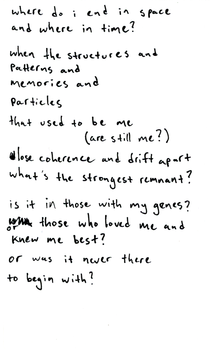 where do i end in space
and where in time?
when the structures and
patterns and
memories and
particles
that used to be me
(are still me?)
lose coherence and drift apart
what's the strongest remnant?
is it in those with my genes?
or those who loved me and
knew me best?
or was it never there
to begin with?